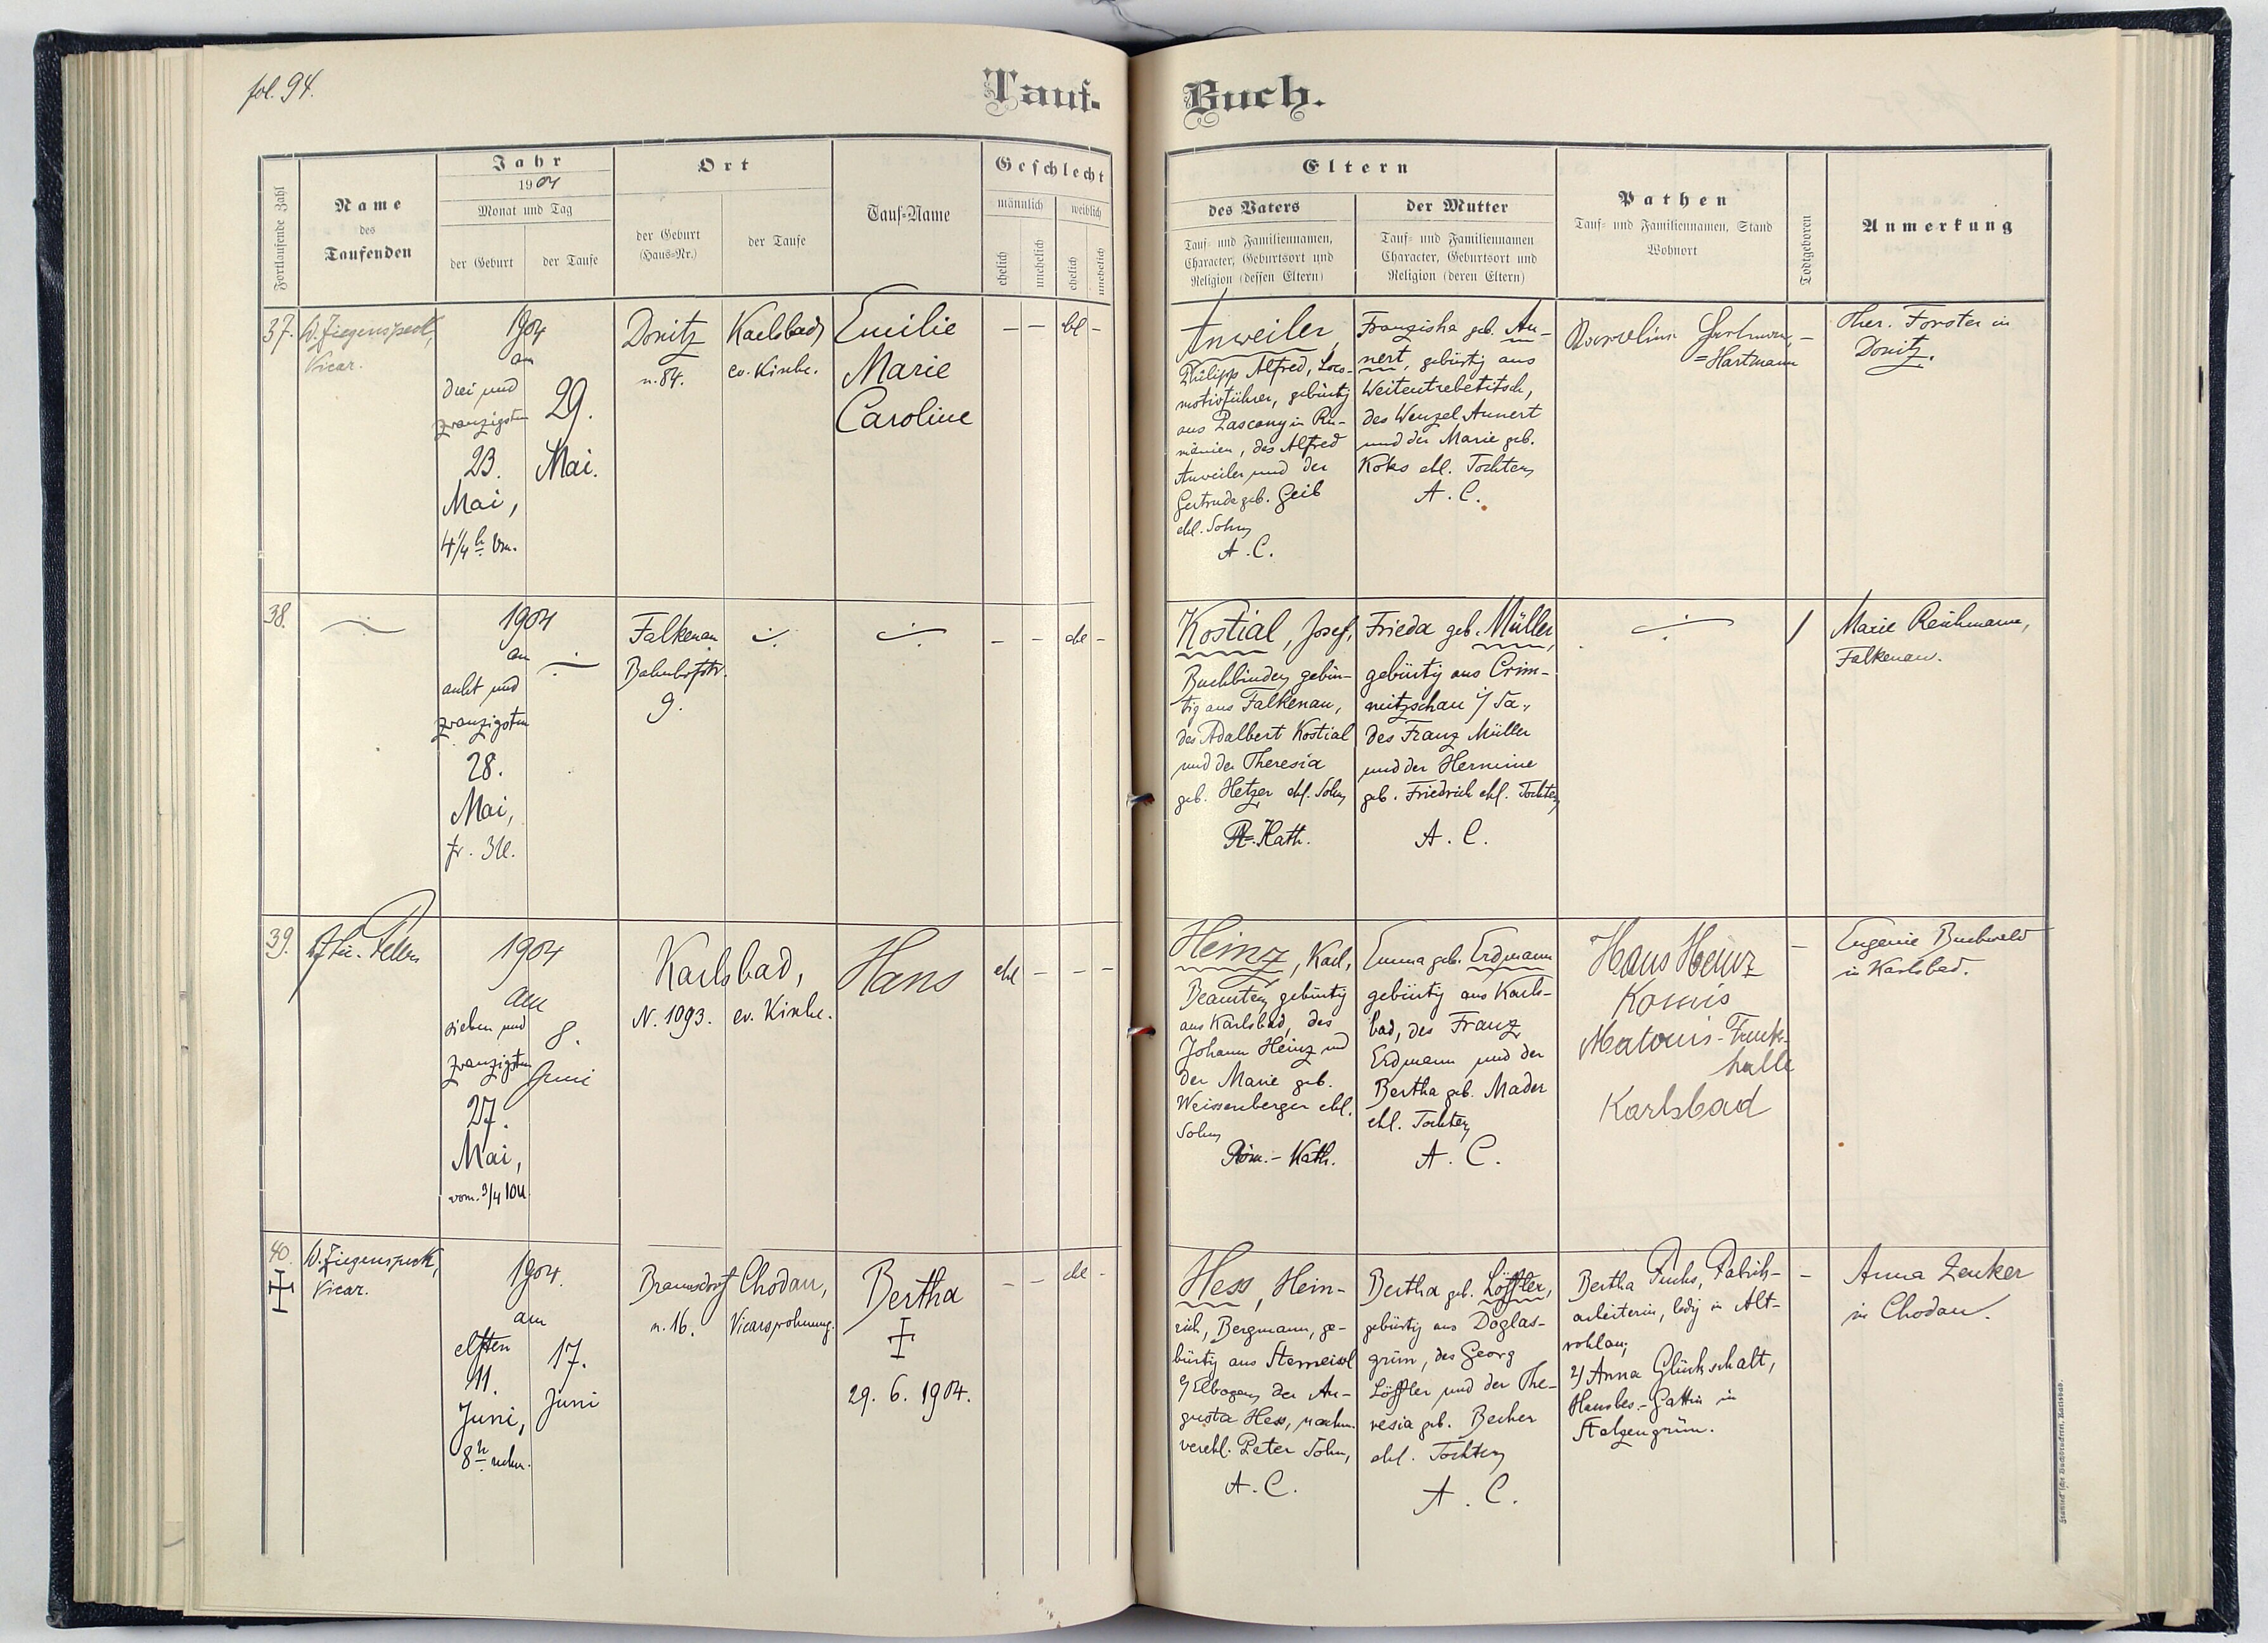 fol. 94.
Tauf-Buch.
Fortlaufende Zahl
Name
des
Taufenden
Jahr
1904
Monat und Tag
der Geburt
der Taufe
Ort
der Geburt
(Haus-Nr.)
der Taufe
Tauf-Name
Geschlecht
männlich
weiblich
ehelich
unehelich
ehelich
unehelich
Eltern
des Vaters
Tauf- und Familiennamen,
Character, Geburtsort und
Religion (dessen Eltern)
der Mutter
Tauf- und Familiennamen
Character, Geburtsort und
Religion (deren Eltern)
Pathen
Tauf- und Familiennamen, Stand
Wohnort
Todtgeboren
Anmerkung
37.
W. Ziegenspeck,
Vicar.
1904
am
drei und
zwanzigsten
23.
Mai,
4 1/4 h Vm.
29.
Mai.
Donitz
n. 84.
Karlsbad,
ev. Kirche.
Emilie
Marie
Caroline
– – ehl –
Anweiler,
Philipp Alfred, Loco-
motivführer, gebürtig
aus Pascany in Ru-
mänien, des Alfred
Anweiler und der
Gertrude geb. Geib
ehl. Sohn,
A. C.
Franziska geb. An-
nert, gebürtig aus
Weitentrebetitsch,
des Wenzel Annert
und der Marie geb.
Koks ehl. Tochter,
A. C.
= Hartmann
–
Ther. Forster in
Donitz.
38.
1904
am
acht und
zwanzigsten
28.
Mai,
fr. 3 U.
Falkenau
Bahnhofstr.
9.
– – ehl –
Kostial, Josef,
Buchbinder, gebür-
tig aus Falkenau,
des Adalbert Kostial
und der Theresia
geb. Hetzer ehl. Sohn,
R.-Kath.
Frieda geb. Müller,
gebürtig aus Crim-
mitzschau i/Sa.,
des Franz Müller
und der Hermine
geb. Friedrich ehl. Tochter,
A. C.
/
Marie Reichmann,
Falkenau.
39.
1904
am
sieben und
zwanzigsten
27.
Mai,
vorm. 3/4 10 U.
8.
Juni
Karlsbad,
N. 1093.
ev. Kirche.
Hans
ehl – – –
Heinz, Karl,
Beamter, gebürtig
aus Karlsbad, des
Johann Heinz und
der Marie geb.
Weissenberger ehl.
Sohn,
Röm.-Kath.
Emma geb. Erdmann
gebürtig aus Karls-
bad, des Franz
Erdmann und der
Bertha geb. Mader
ehl. Tochter,
A. C.
Hans Heinz
Komis
Matonis-Fruck-
halle
Karlsbad
–
Eugenie Buchwald
in Karlsbad.
40.
W. Ziegenspeck,
Vicar.
1904.
am
elften
11.
Juni,
8 h nchm.
17.
Juni
Braunsdorf
n. 16.
Chodau,
Vicarswohnung.
Bertha
29. 6. 1904.
– – ehl –
Hess, Hein-
rich, Bergmann, ge-
bürtig aus Steineisl
b/Elbogen, der Au-
gusta Hess, nachm.
verehl. Peter Sohn,
A. C.
Bertha geb. Löffler,
gebürtig aus Döglas-
grün, des Georg
Löffler und der The-
resia geb. Becher
ehl. Tochter,
A. C.
Bertha Fuchs, Fabrik-
arbeiterin, ledig in Alt-
rohlau;
2) Anna Glückschalt,
Hausbes.-Gattin in
Stelzengrün.
–
Anna Zenker
in Chodau.